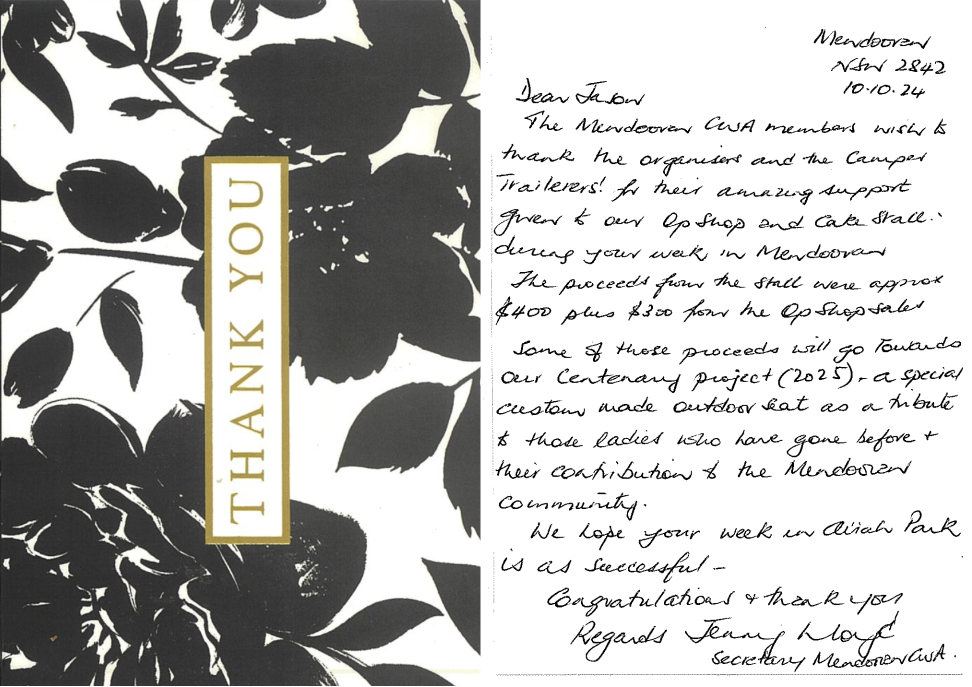 THANK YOU
Mendooran
NSW 2842
10.10.24
Dear Jason
The Mendooran CWA members wish to
thank the organisers and the Camper
Trailerers' for their amazing support
given to our Op Shop and Cake Stall.
during your week in Mendooran
The proceeds from the stall were approx
$400 plus $300 from the Op Shop sales
Some of those proceeds will go Towards
our Centenary project (2025) - a special
custom made outdoor seat as a tribute
to those ladies who have gone before +
their contribution to the Mendooran
Community.
We hope your week in Ariah Park
is as successful -
Congratulations + thank you
Regards Jenny Lloyd
Secretary Mendooran CWA.